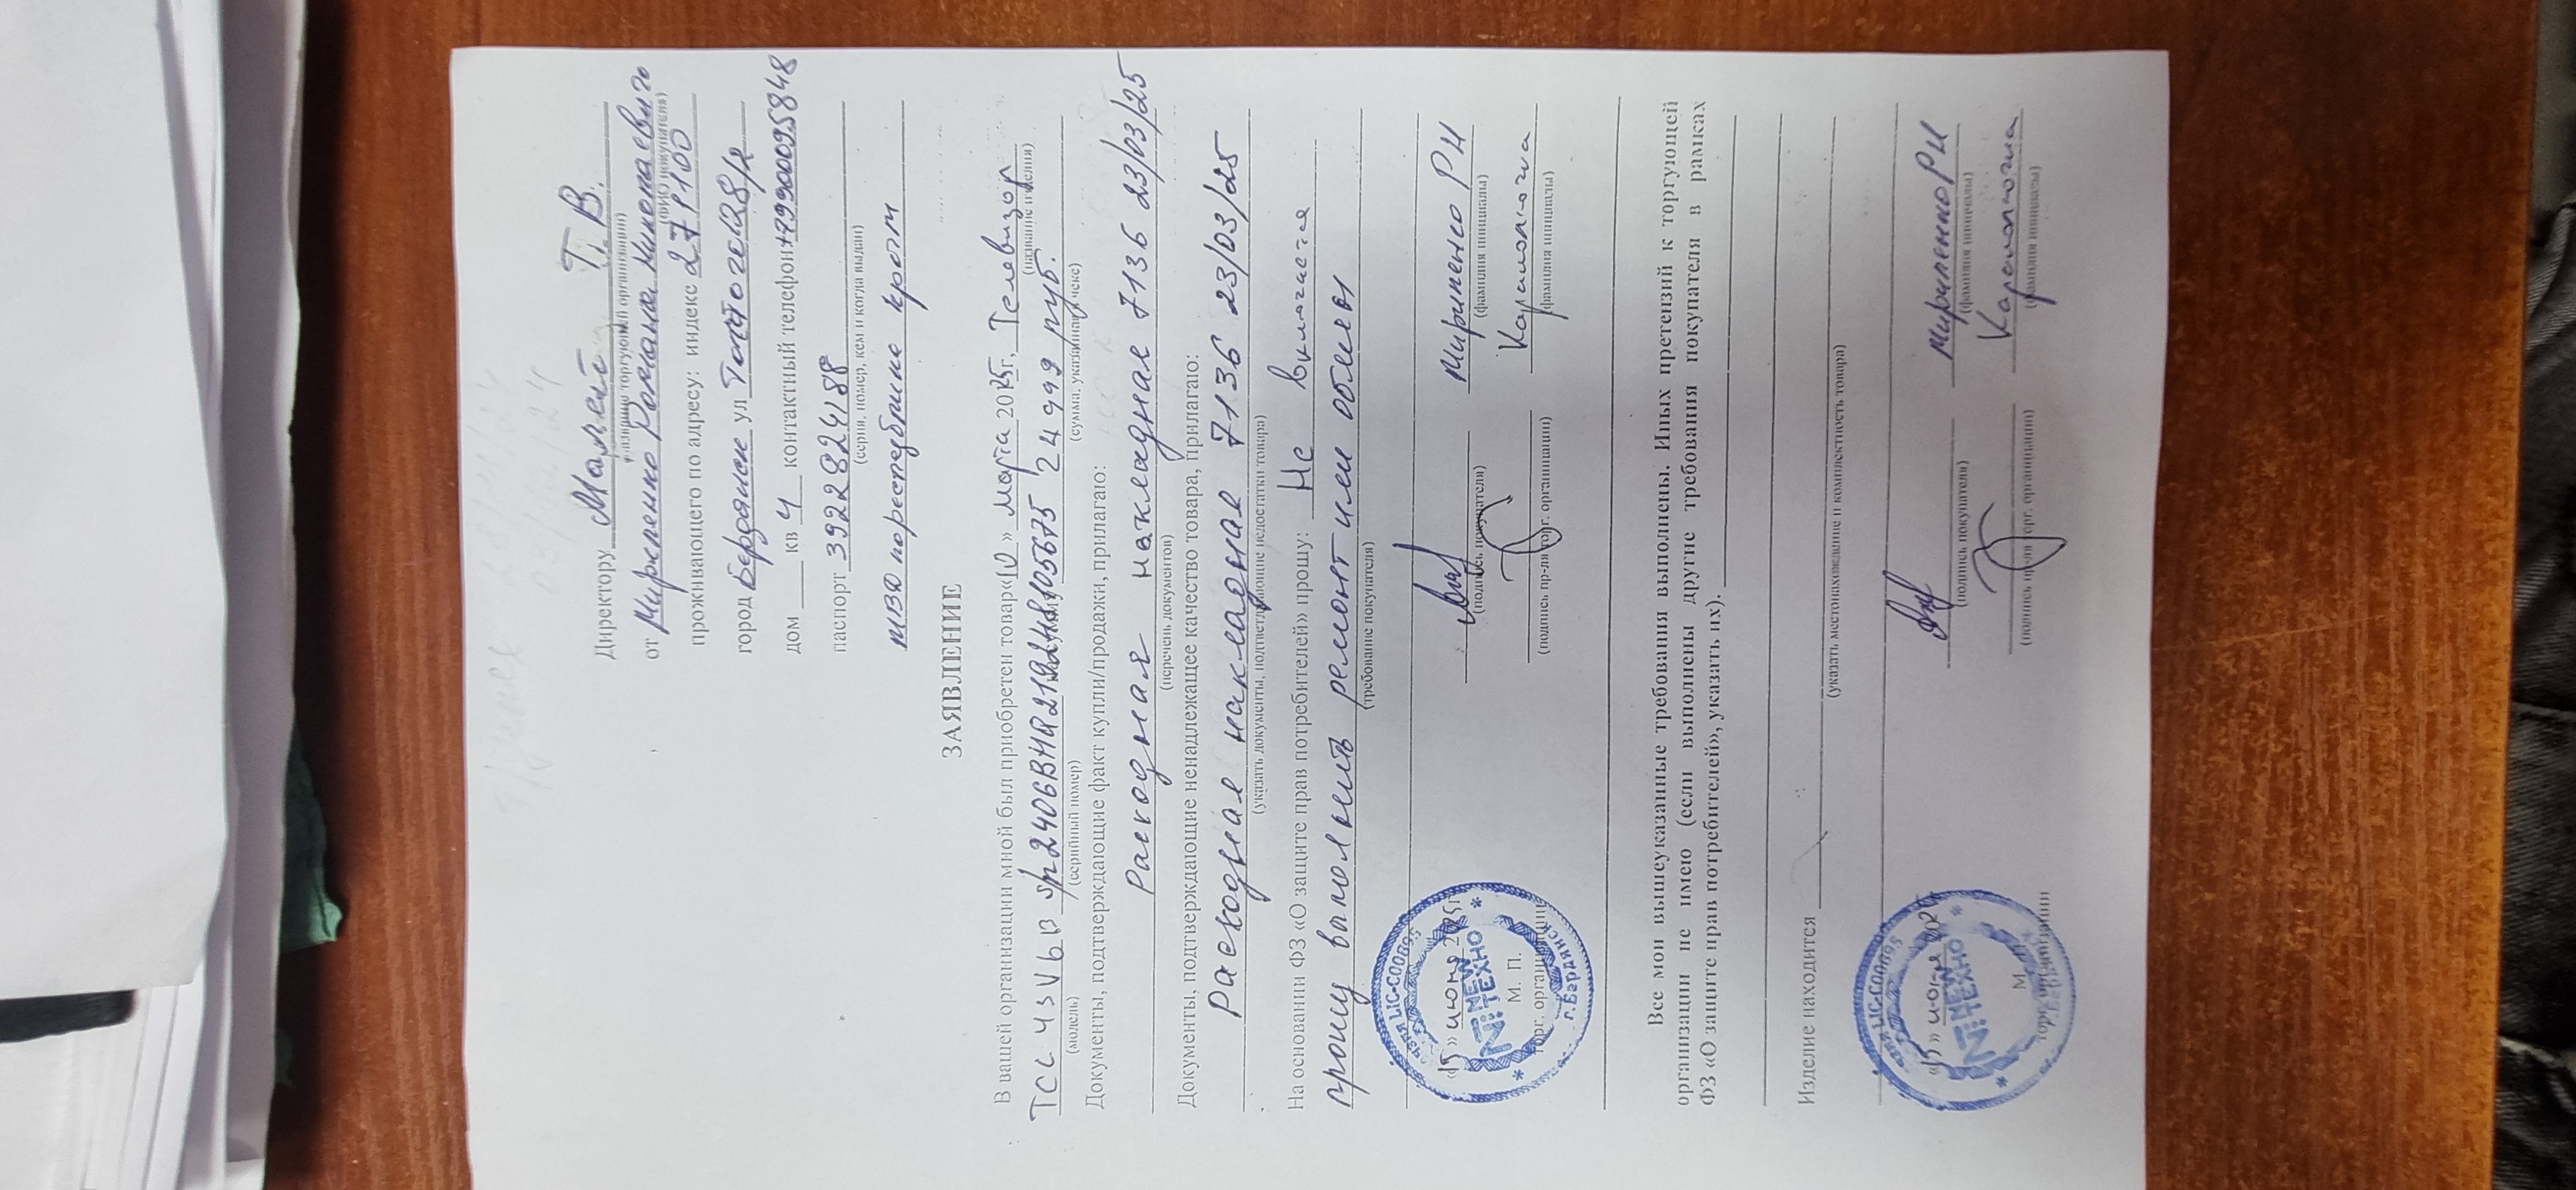 Директору Малей Т.В.
(название торгующей организации)
от Мириленко Романа Николаевича
(ФИО покупателя)
проживающего по адресу: индекс 271100
город Бердянск ул Тотлебена 28/2
дом ___ кв 4 контактный телефон +79900095848
паспорт 3922824188
(серия, номер, кем и когда выдан)
МВД по республике Крым
ЗАЯВЛЕНИЕ
В вашей организации мной был приобретен товар «10» марта 2025г, Телевизор
(название изделия)
TCL 43V6B s/n 2406 24999 руб.
(модель) (серийный номер) (сумма, указанная в чеке)
Документы, подтверждающие факт купли/продажи, прилагаю:
Расходная накладная 7136 23/03/25
(перечень документов)
Документы, подтверждающие ненадлежащее качество товара, прилагаю:
Расходная накладная 7136 23/03/25
(указать документы, подтверждающие недостатки товара)
На основании ФЗ «О защите прав потребителей» прошу: Не включается
прошу выполнить ремонт или обмен
(требование покупателя)
Мириленко РН
(подпись покупателя) (фамилия инициалы)
«15» июня 2025г
NEW ТЕХНО
г. Бердянск
М. П.
торг. организации
(подпись пр-ля торг. организации) (фамилия инициалы)
Все мои вышеуказанные требования выполнены. Иных претензий к торгующей
организации не имею (если выполнены другие требования покупателя в рамках
ФЗ «О защите прав потребителей», указать их).
Изделие находится
(указать местонахождение и комплектность товара)
Мириленко РН
(подпись покупателя) (фамилия инициалы)
«15» июня
NEW ТЕХНО
торг. организации
(подпись пр-ля торг. организации) (фамилия инициалы)